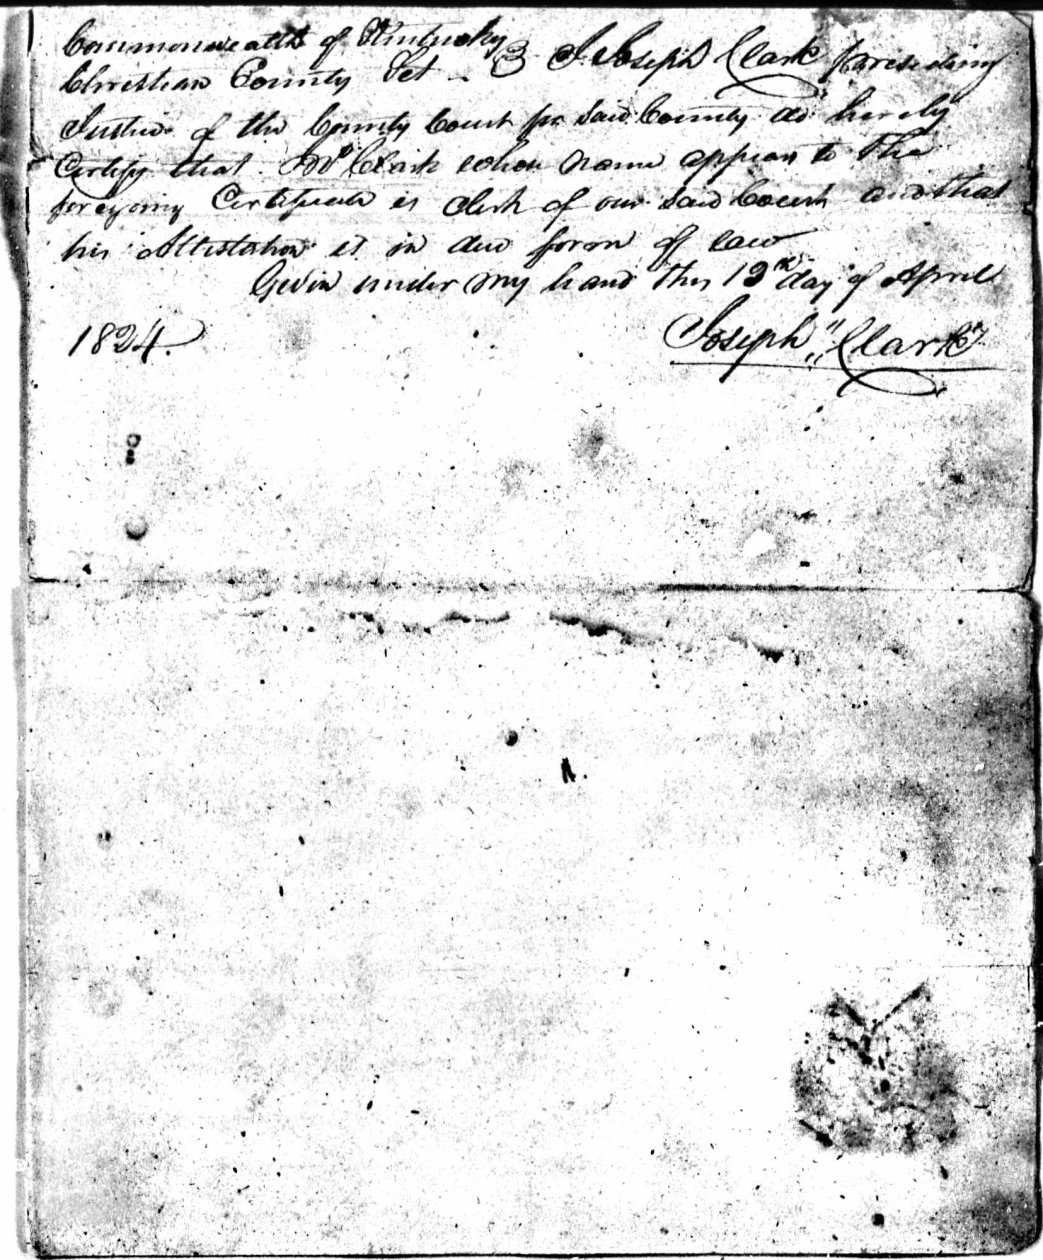 Commonwealth of Kentucky
Christian County Sct. I Joseph Clark presiding
Justice of the County Court for said County do hereby
Certify that Jno Clark whose name appears to the
foregoing Certificate is Clerk of our said Court and that
his Attestation is in due form of law
Given under my hand this 12th day of April
1824. Joseph Clark